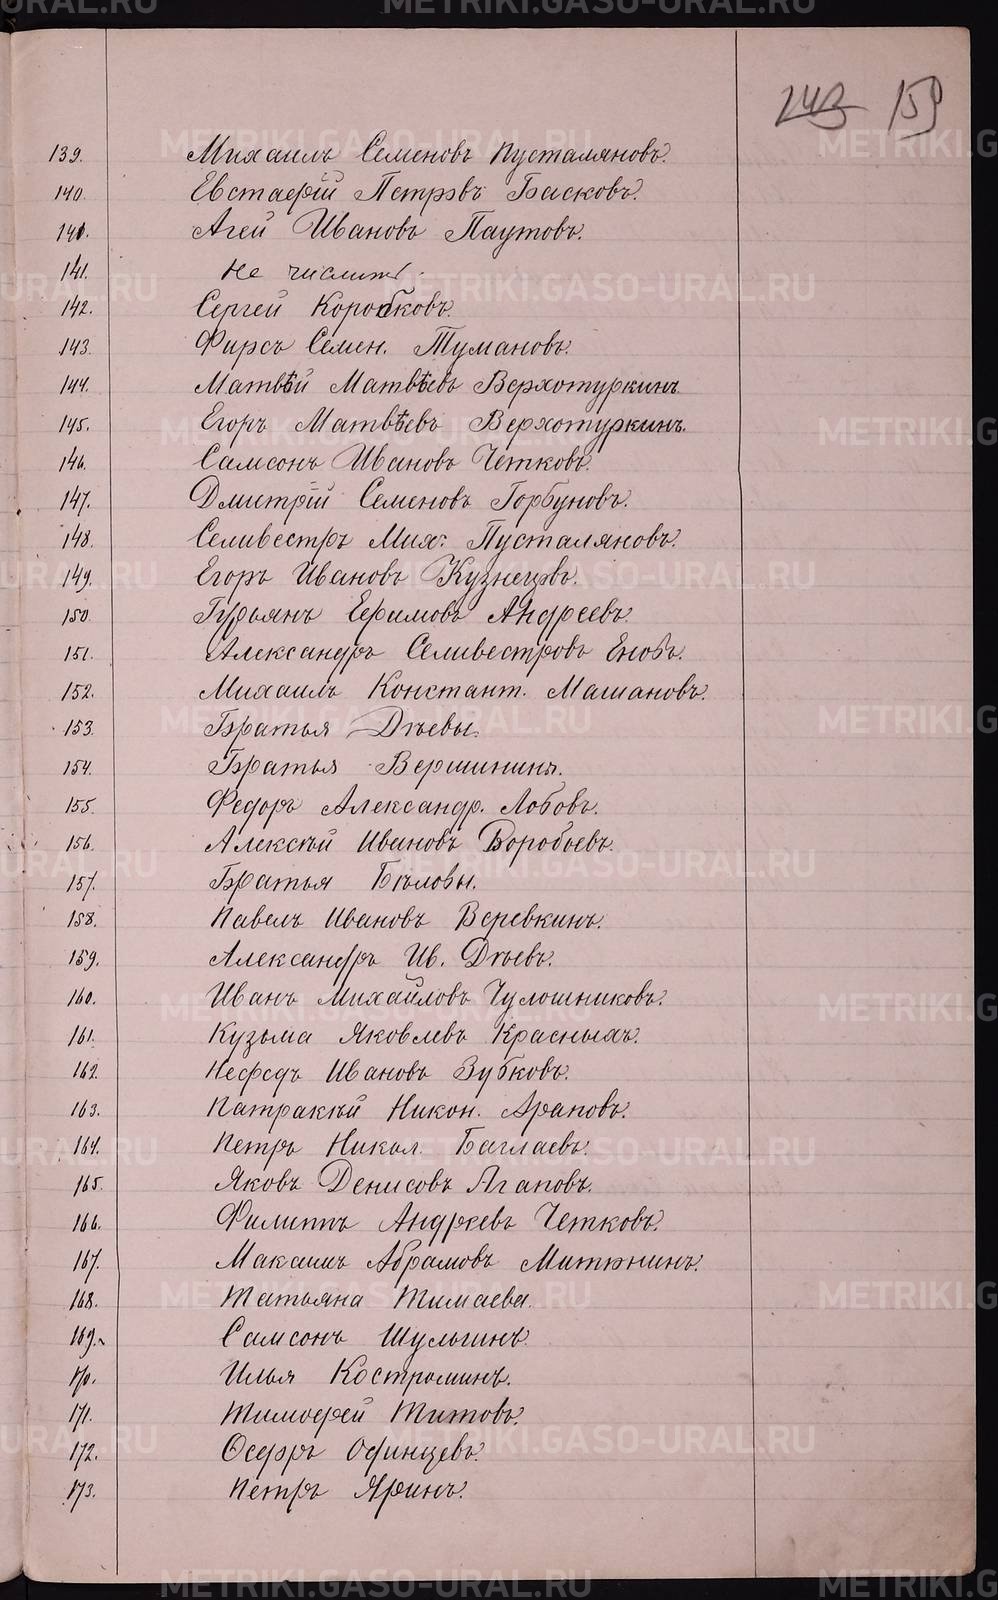 243 159
139. Михаилъ Семеновъ Пусталяновъ.
140. Евстаѳій Петровъ Басковъ.
140. Агей Ивановъ Паутовъ.
141. Не числит
142. Сергей Коробковъ.
143. Фирсъ Семен. Тумановъ.
144. Матвѣй Матвѣевъ Верхотуркинъ
145. Егоръ Матвѣевъ Верхотуркинъ.
146. Самсонъ Ивановъ Четковъ.
147. Дмитрій Семеновъ Горбуновъ.
148. Селивестръ Мих: Пусталяновъ.
149. Егоръ Ивановъ Кузнецовъ.
150. Гурьянъ Ефимовъ Андреевъ.
151. Александръ Селивестровъ Еновъ.
152. Михаилъ Констант. Машановъ.
153. Братья Дѣевы.
154. Братья Вершинины.
155. Федоръ Александр. Лобовъ.
156. Алексѣй Ивановъ Воробьевъ.
157. Братья Бѣловы.
158. Павелъ Ивановъ Веревкинъ.
159. Александръ Ив. Дѣевъ.
160. Иванъ Михайловъ Чулошниковъ.
161. Кузьма Яковлевъ Красныхъ.
162. Нефедъ Ивановъ Зубковъ.
163. Патракѣй Никон. Араповъ.
164. Петръ Никол. Баглаевъ.
165. Яковъ Денисовъ Агаповъ.
166. Филиппъ Андреевъ Четковъ.
167. Максимъ Абрамовъ Митюнинъ.
168. Татьяна Тимаева.
169. Самсонъ Шульгинъ.
170. Илья Костроминъ.
171. Тимофей Титовъ.
172. Ѳедоръ Офинцевъ.
173. Петръ Яринъ.
METRIKI.GASO-URAL.RU